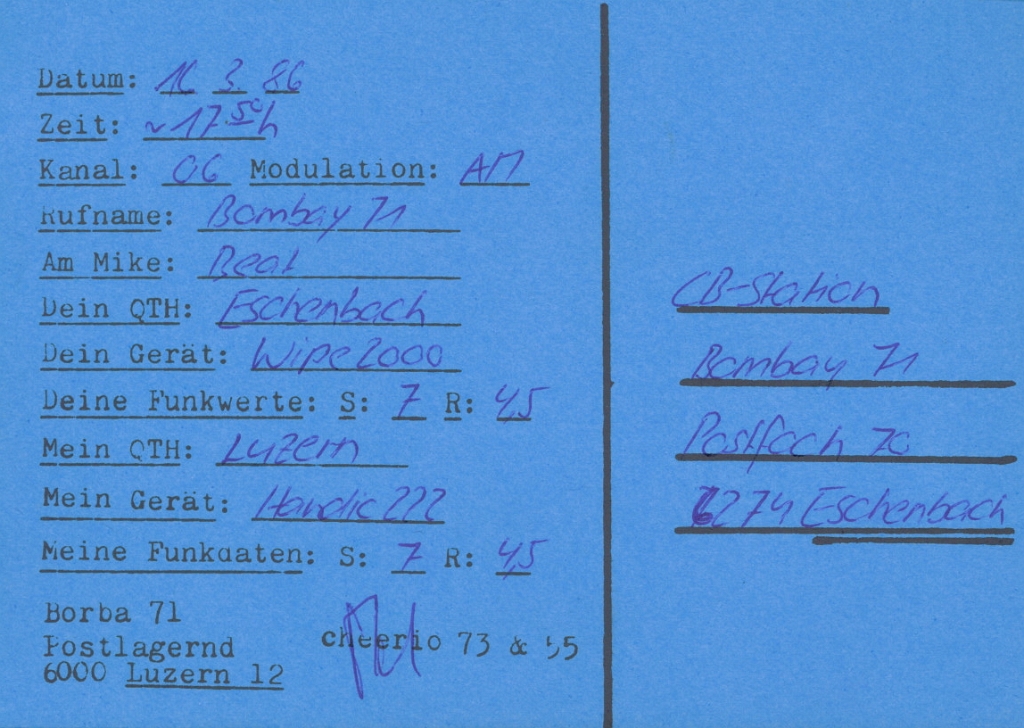 Datum: 16 3 86
Zeit: ~17.50h
Kanal: 06 Modulation: AM
Rufname: Bombay 71
Am Mike: Beat
Dein QTH: Eschenbach
Dein Gerät: Wipe 2000
Deine Funkwerte: S: 7 R: 4,5
Mein QTH: Luzern
Mein Gerät: Handic 222
Meine Funkdaten: S: 7 R: 4,5
Borba 71
Postlagernd
6000 Luzern 12
cheerio 73 & 55
CB-Station
Bombay 71
Postfach 70
6274 Eschenbach